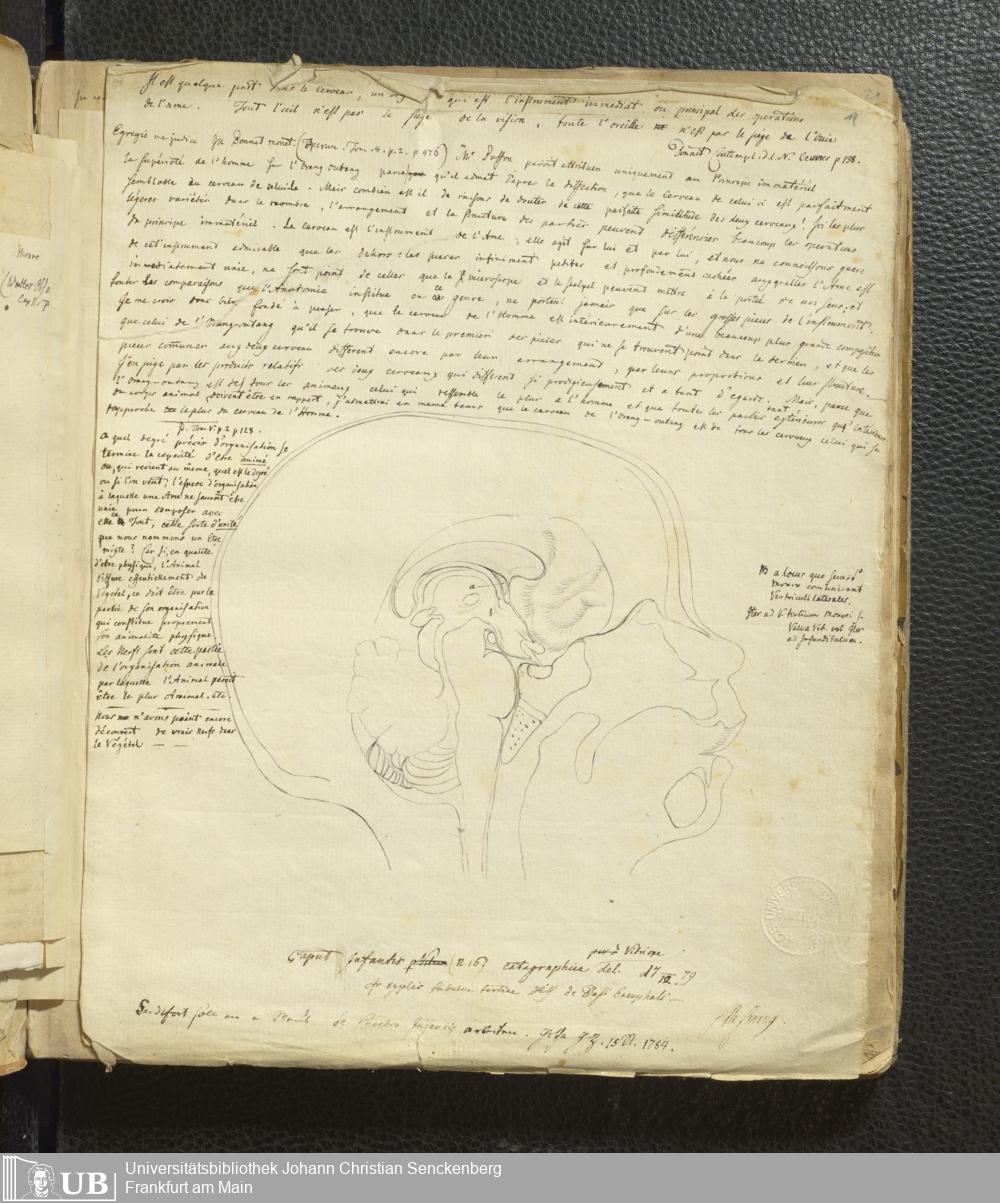 Il est quelque part dans le cerveau, un organe qui est l'instrument immédiat ou principal des operations
de l'ame. Tout l'oeil n'est pas le siege de la vision, toute l'oreille n'est pas le siege de l'Ouie
Bonnet Contempl. d. l. N. Oeuvres p 138.
Egregie me judice Bonnet monet: (Tom. 4. p. 2. p 476) Mr Buffon paroit attribuer uniquement au Principe immatériel
la supériorité de l'homme sur l'Orang outang parceque qu'il admet d'apres la dissection, que le cerveau de celui ci est parfaitement
semblable au cerveau de celuila. Mais combien est il de raisons de douter de cette parfaite similitude des deux cerveaux! Les plus
légeres variétés dans le nombre, l'arrangement et la structure des parties peuvent différencier beaucoup les operations
du principe immatériel. Le cerveau est l'instrument de l'Ame; elle agit sur lui et par lui, et nous ne connoissons guere
de cet instrument admirable que les dehors: les pieces infiniment petites et profondement cachées auxquelles l'Ame est
immediatement unie, ne sont point de celles que le microscope et le scalpel peuvent mettre à la portée de nos sens; et
toutes les comparaisons que l'Anatomie institue en ce genre, ne portent jamais que sur les grosses pieces de l'instrument.
Je me crois donc bien fondé à penser, que le cerveau de l'Homme est intérieurement d'une beaucoup plus grande composition
que celui de l'Orang-outang qu'il se trouve dans le premier des pieces qui ne se trouvent point dans le dernier, et que les
pieces communes aux deux cerveau different encore par leur arrangement, par leurs proportions et leur structure.
J'en juge par les produits relatifs des deux cerveaux qui different si prodigieusement et a tant d'egards. Mais, parce que
l'Orang-outang est de tous les animaux celui qui ressemble le plus a l'homme et que toutes les parties tant extérieures qu'intérieures
du corps animal doivent être en rapport, j'admettrai en meme tems que le cerveau de l'Orang-outang est de tous les cerveaux celui qui se
rapproche le plus du cerveau de l'Homme.
p. Tom V. p. 2 p 128.
A quel degré précis d'organisation se
termine la capacité d'être animé
ou, qui revient au même, quel est le degré
ou si l'on veut, l'espece d'organisation
à laquelle une Ame ne sauroit être
unie pour composer avec
elle ce Tout, cette sorte d'unité
que nous nommons un Etre
mixte? Car si, en qualité
d'etre physique, l'Animal
differe essentiellement du
Végétal, ce doit être par la
partie de son organisation
qui constitue proprement
son animalité physique.
Les Nerfs sont cette partie
de l'organisation animale
par laquelle l'Animal paroit
être le plus Animal. etc.
Nous n'avons point encore
découvert de vrais Nerfs dans
le Végétal — —
a
NB a locus quo secund.
Monro communicant
Ventriculi laterales.
Iter ad V. tertium Monroi s.
Vulva Vet. vel Iter
ad Infundibulum.
Monro
Caput Infantis (n 16) catagraphice del. d 7 79
cfr explic tabulae tertiae Diss de Basi Encephali —
15 1784.
Universitätsbibliothek Johann Christian Senckenberg
Frankfurt am Main
UB